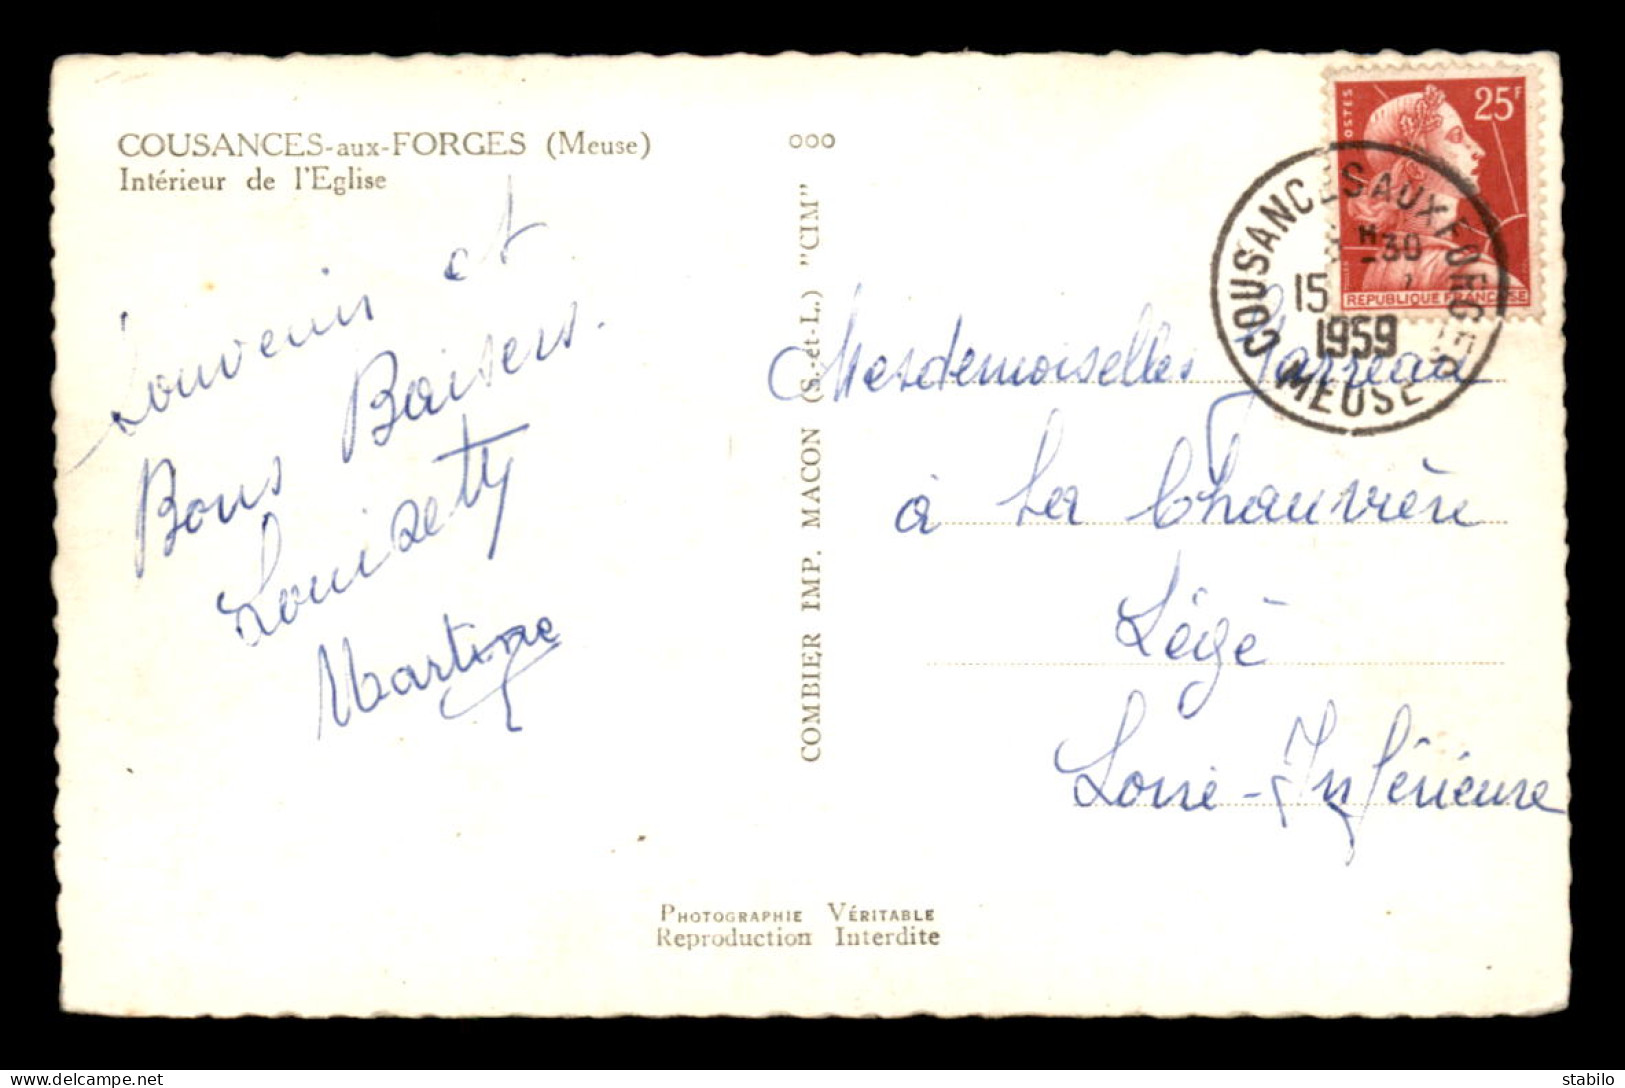 COUSANCES-aux-FORGES (Meuse)
Intérieur de l'Eglise
Souvenir et
Bons Baisers.
Louisette
Martine
ooo
COMBIER IMP. MACON (S.-et-L.) "CIM"
POSTES
25F
REPUBLIQUE FRANCAISE
COUSANCES AUX FORGES
H-30
15
1959
MEUSE
Mesdemoiselles Garreau
à La Chauvière
Légé
Loire-Inférieure
PHOTOGRAPHIE VÉRITABLE
Reproduction Interdite
stabylo